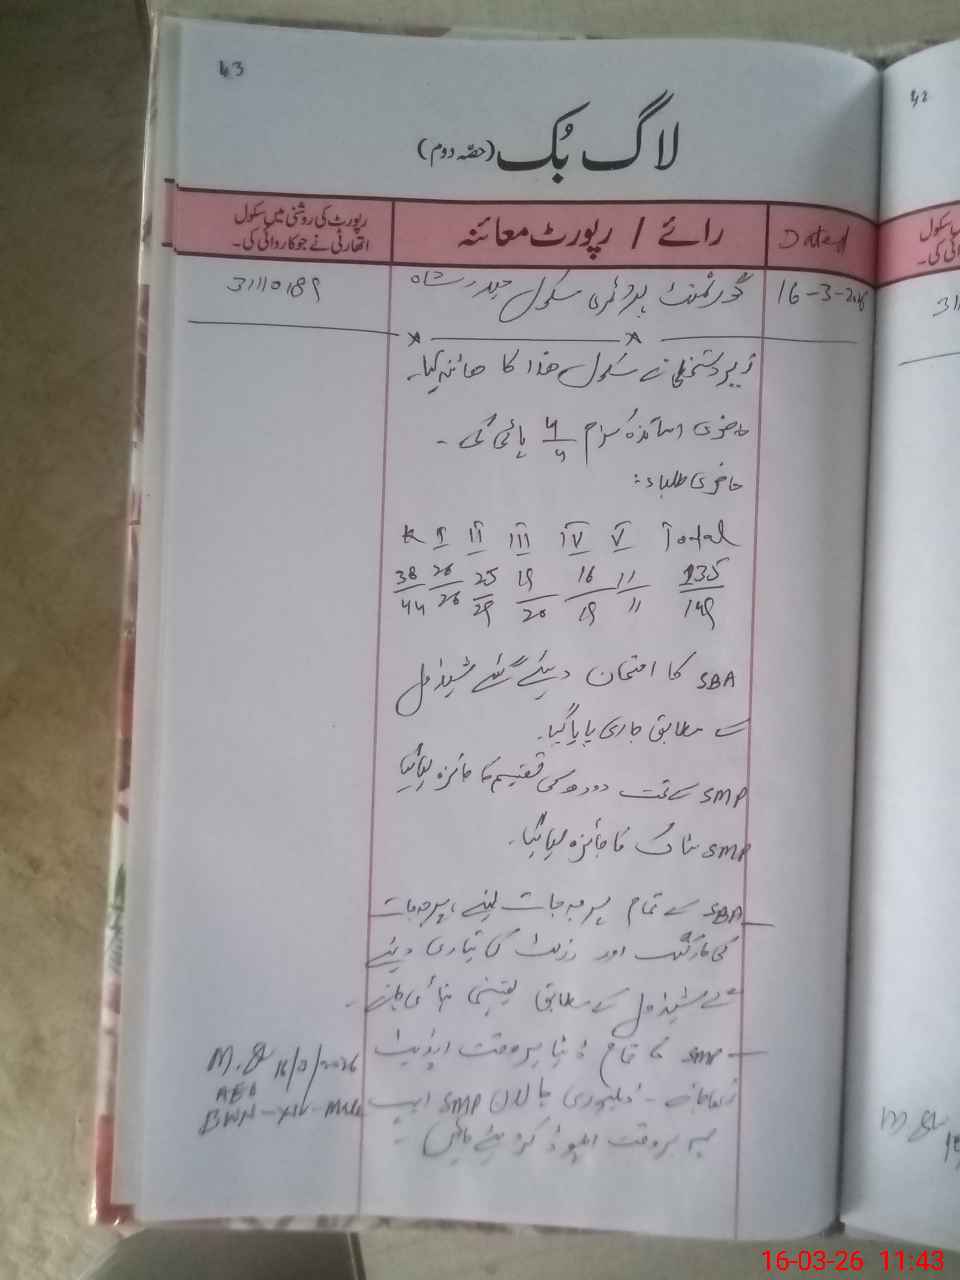 43
لاگ بُک (حصّہ دوم)
Dated
رائے / رپورٹ معائنہ
رپورٹ کی روشنی میں سکول
اتھارٹی نے جو کاروائی کی۔
16-3-2026
گورنمنٹ پرائمری سکول حیدر شاہ
31110189
زیر دستخطی نے سکول ھذا کا معائنہ کیا۔
حاضری اساتذہ کرام 4/4 پائی گئی۔
حاضری طلباء:
K I II III IV V Total
38/44 26/26 25/29 19/20 16/19 11/11 135/149
SBA کا امتحان دیئے گئے شیڈول
کے مطابق جاری پایا گیا۔
SMP کے تحت دودھ کی تقسیم کا جائزہ لیا گیا
SMP سٹاک کا جائزہ لیا گیا۔
SBA کے تمام پرچہ جات لینے، پرچہ جات
کی مارکنگ اور رزلٹ کی تیاری دیئے
گئے شیڈول کے مطابق یقینی بنائی جائے۔
SMP کا تمام ڈیٹا بروقت اپڈیٹ
رکھا جائے۔ ڈیلیوری چالان SMP ایپ
پہ بروقت اپلوڈ کر دیئے جائیں۔
16/3/2026
AEO
BWN-XIV-Male
16-03-26 11:43